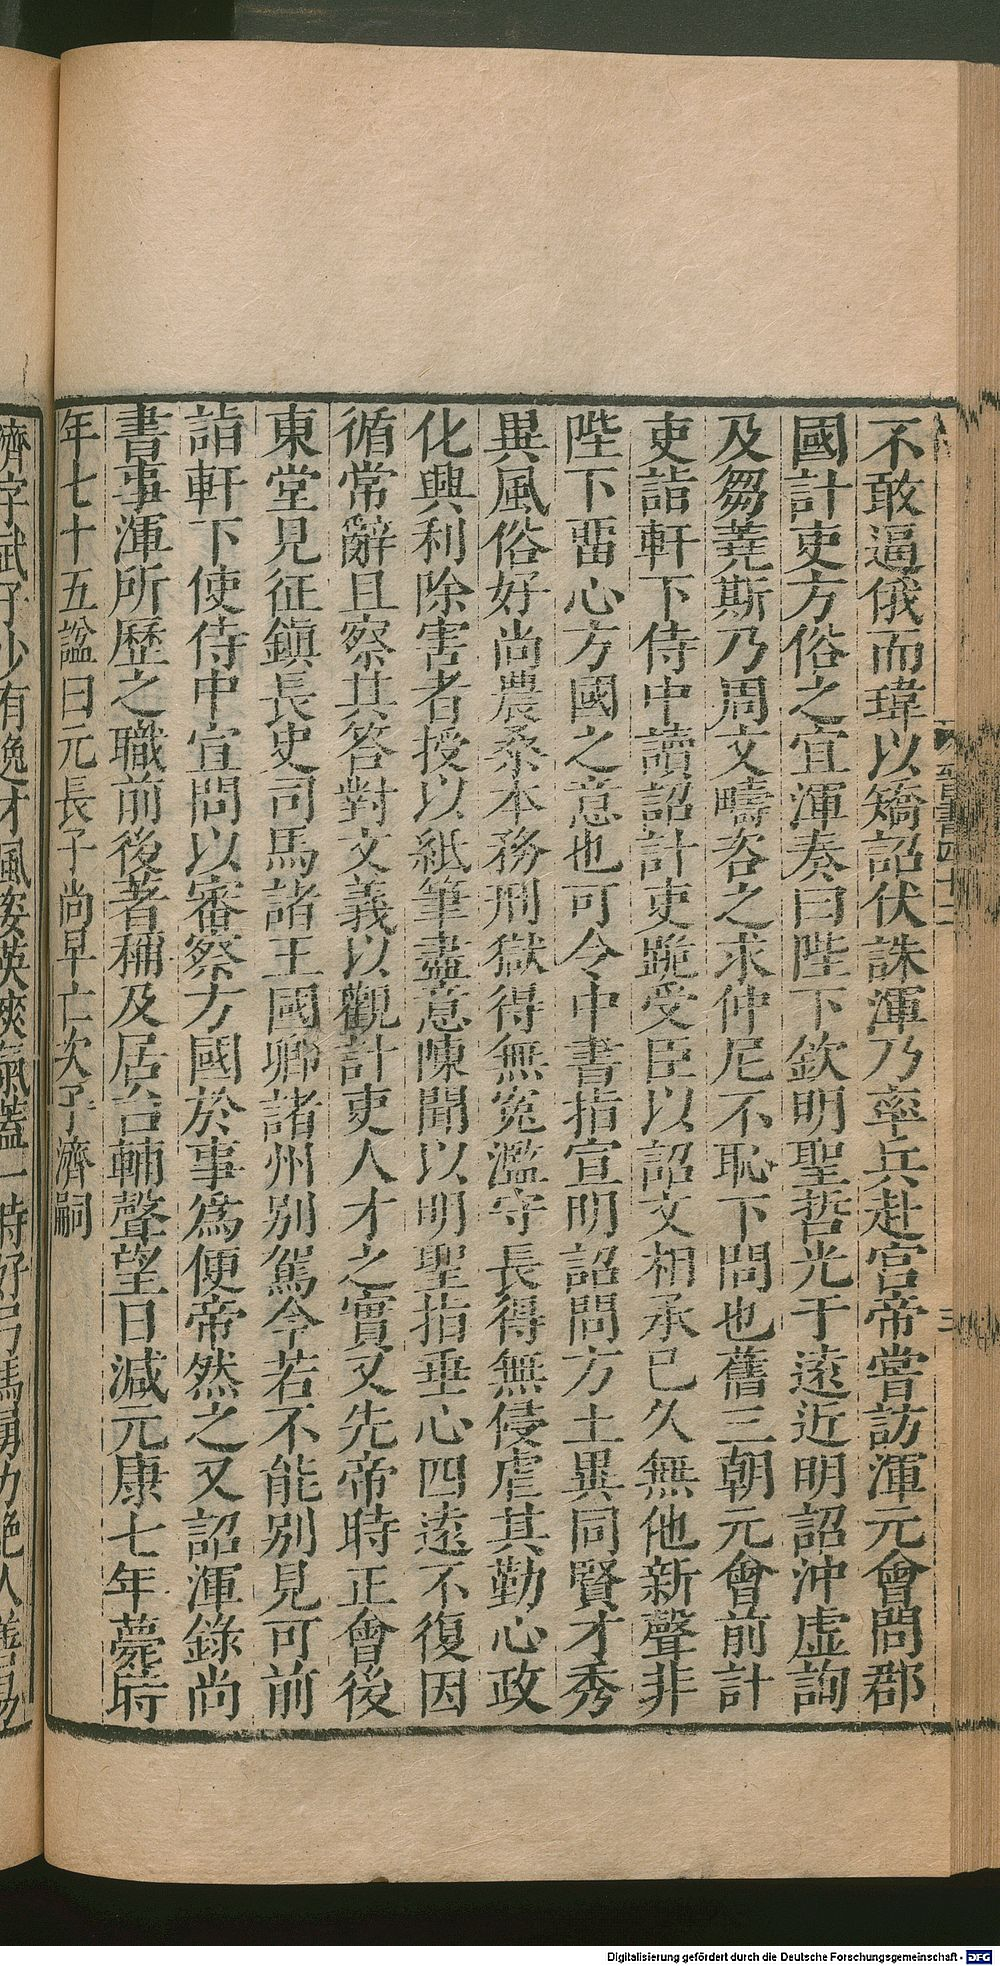 不敢逼俄而瑋以矯詔伏誅渾乃率兵赴宮帝嘗訪渾元會問郡
國計吏方俗之宜渾奏曰陛下欽明聖哲光于遠近明詔沖虛詢
及芻蕘斯乃周文疇咨之求仲尼不恥下問也舊三朝元會前計
吏詣軒下侍中讀詔計吏跪受臣以詔文相承已久無他新聲非
陛下畱心方國之意也可令中書指宣明詔問方土異同賢才秀
異風俗好尚農桑本務刑獄得無冤濫守長得無侵虐其勤心政
化興利除害者授以紙筆盡意陳聞以明聖指垂心四遠不復因
循常辭且察其答對文義以觀計吏人才之實又先帝時正會後
東堂見征鎮長史司馬諸王國卿諸州別駕今若不能別見可前
詣軒下使侍中宣問以審察方國於事爲便帝然之又詔渾錄尚
書事渾所歷之職前後著稱及居台輔聲望日減元康七年薨時
年七十五諡曰元長子尚早亡次子濟嗣
濟字武子少有逸才風姿英爽氣蓋一時好弓馬勇力絕人善易
晉書四十二
三
Digitalisierung gefördert durch die Deutsche Forschungsgemeinschaft - DFG